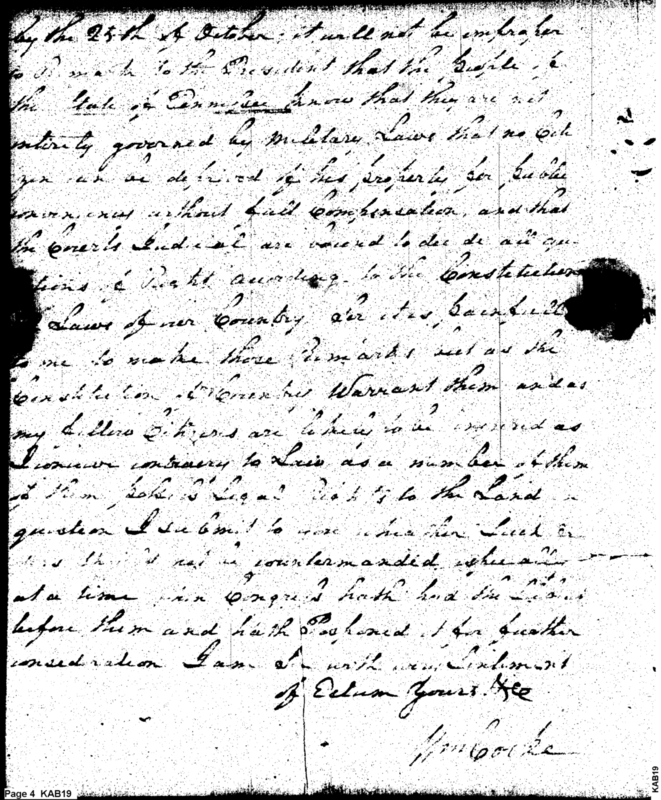 by the 25th of October; it will not be improper
to Remark to the President that the People of
the State of Tennessee know that they are not
intirely governed by Military Laws that no Citi
zen can be deprived of his property for Publc
convenience without full Compensation, and that
the Courts Judicial are bound to decide all que
tions of Right according to the Constitution
Laws of our Country Sir it is painfull
to me to make those Remarks but as the
Constitution of Country Warrant them and as
my fellow Citizens are likely to be injured as
I concieve contrary to Law, as a number of them
of them Legal Rights to the Land in
question I submit to you wheather Such or
ders should not be countermanded, especially
at a time when Congress hath had the
before them and hath Posponed it for further
consedration I am Sir with Sentiment
of Estum Yours &c
Wm Cocke
Page 4 KAB19
KAB19